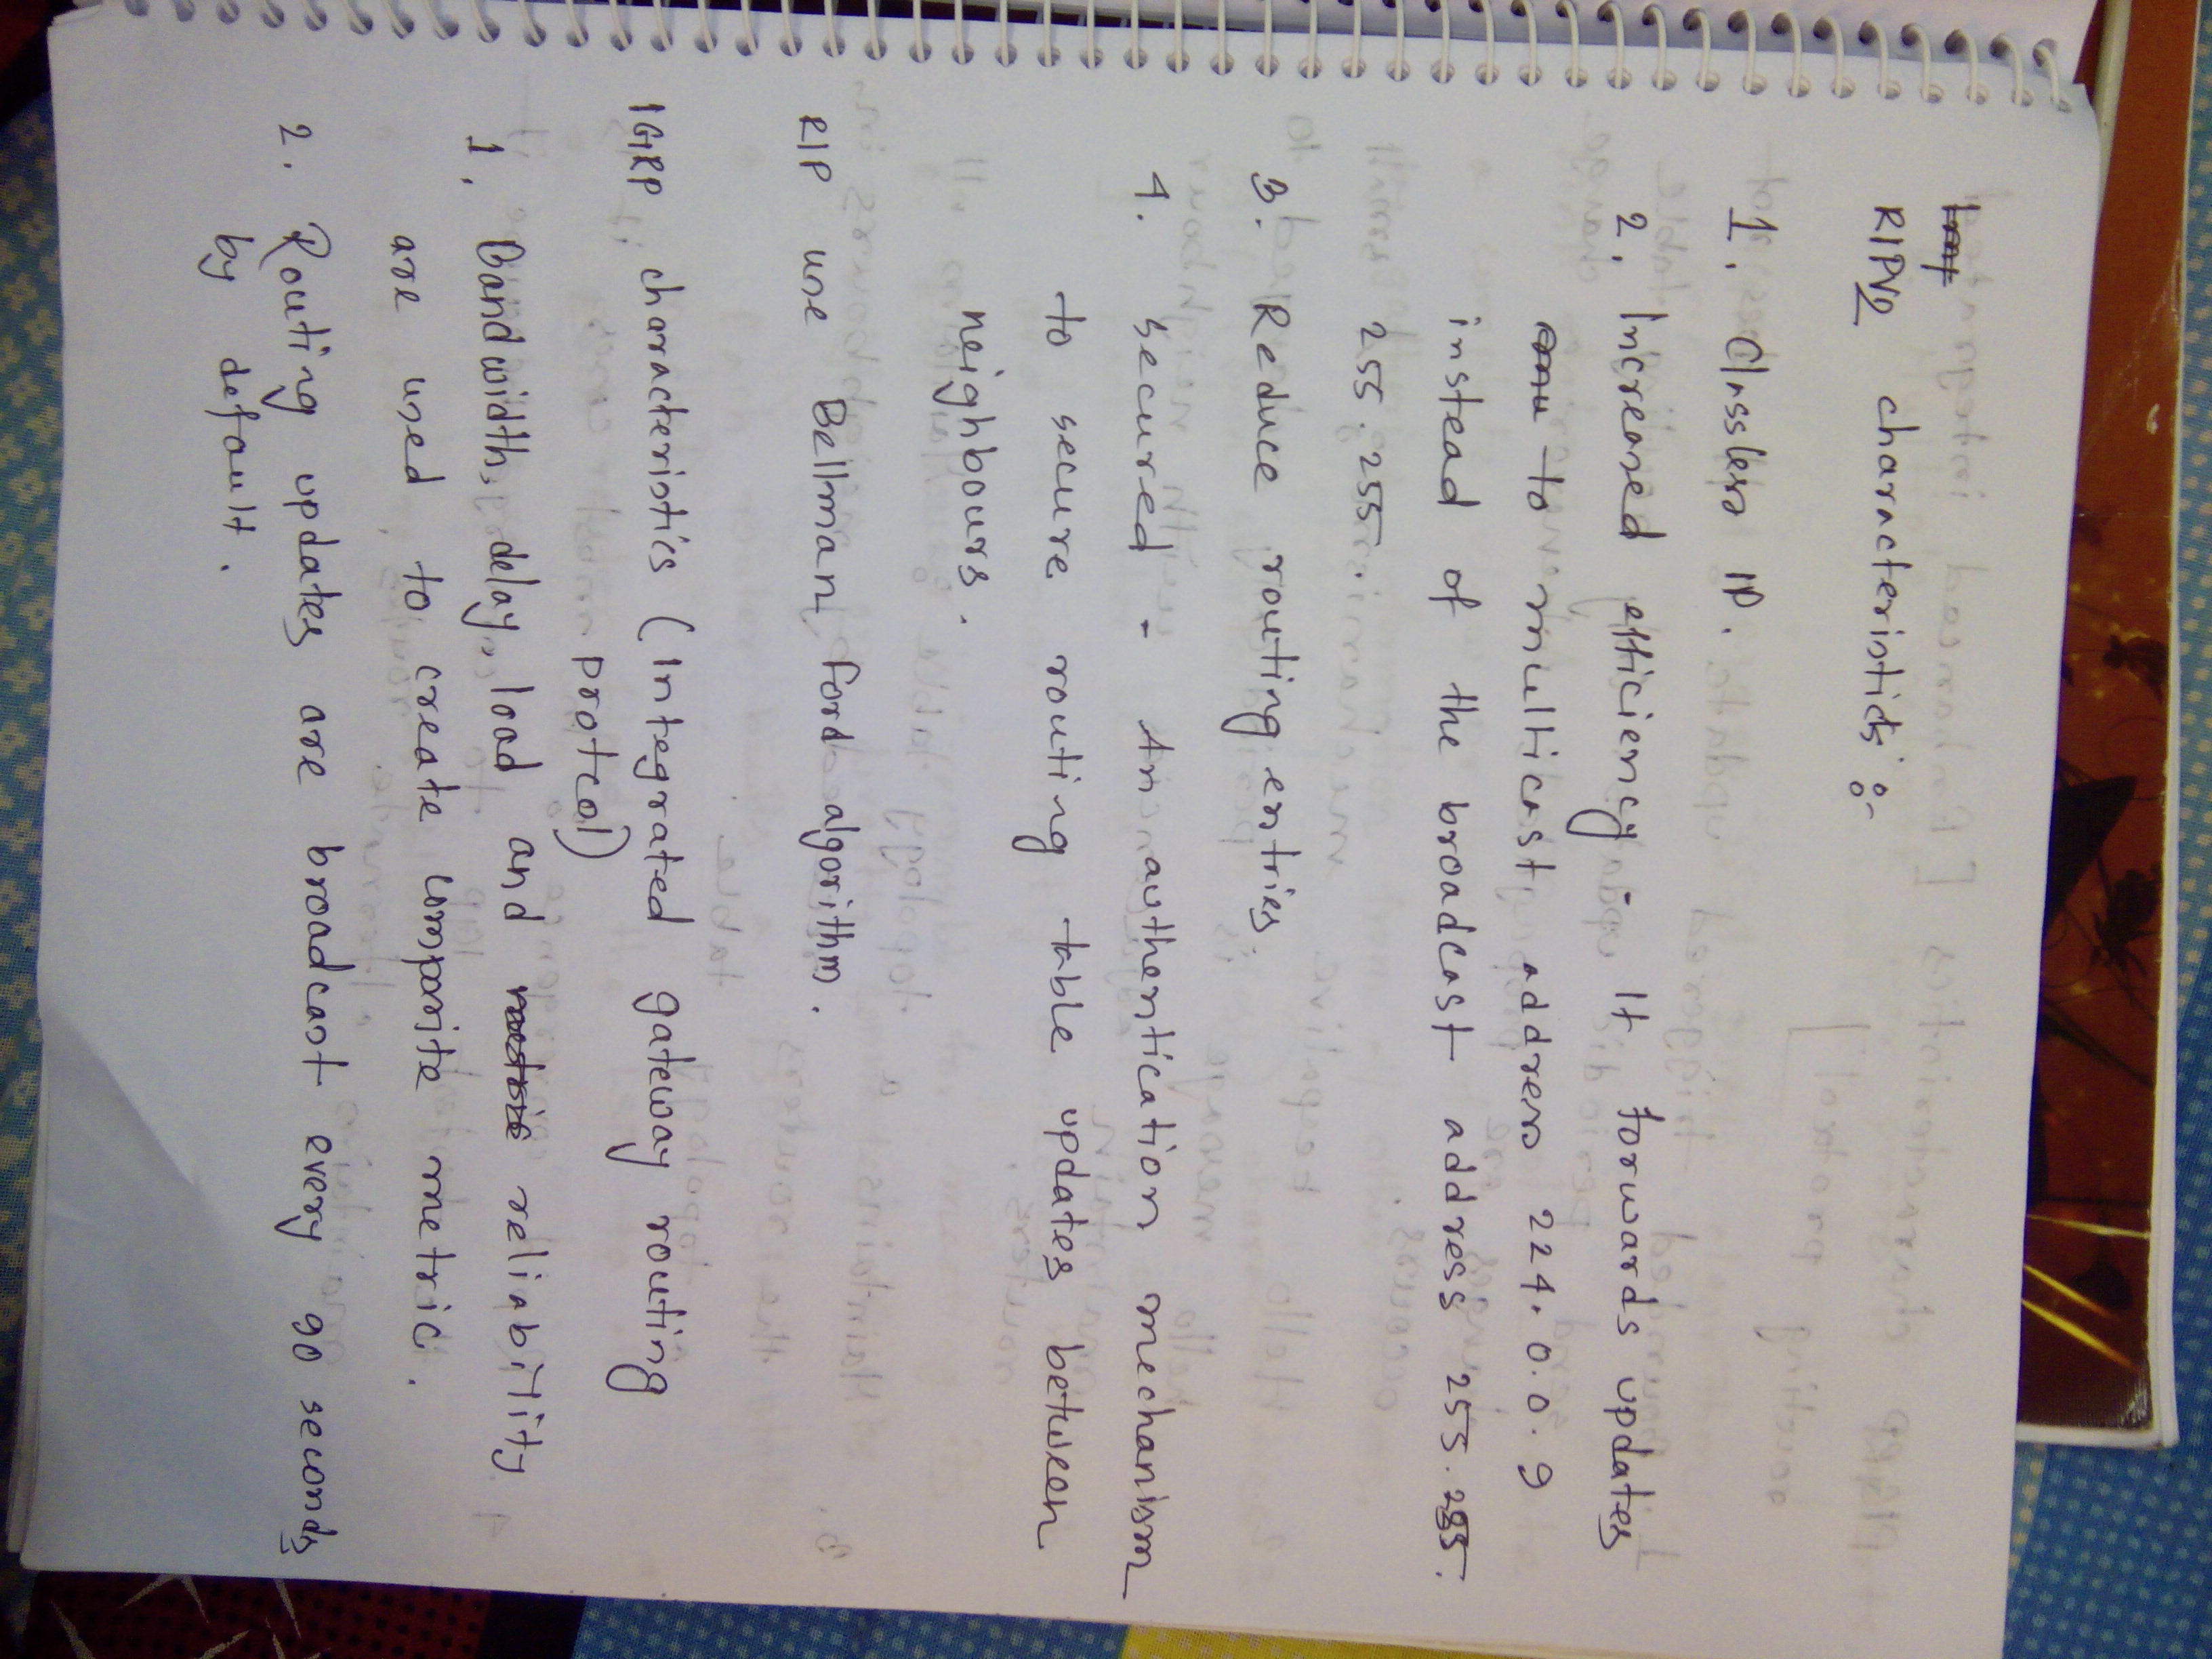 RIPV2 characteristics :-
1. Classless IP.
2. Increased efficiency - It forwards updates
to multicast address 224.0.0.9
instead of the broadcast address 255.255.
255.255.
3. Reduce routing entries.
4. secured - An authentication mechanism
to secure routing table updates between
neighbours.
RIP use Bellman Ford algorithm.
IGRP characteristics (Integrated gateway routing
protcol)
1. Bandwidth, delay, load and reliability
are used to create composite metric.
2. Routing updates are broadcast every 90 seconds
by default.